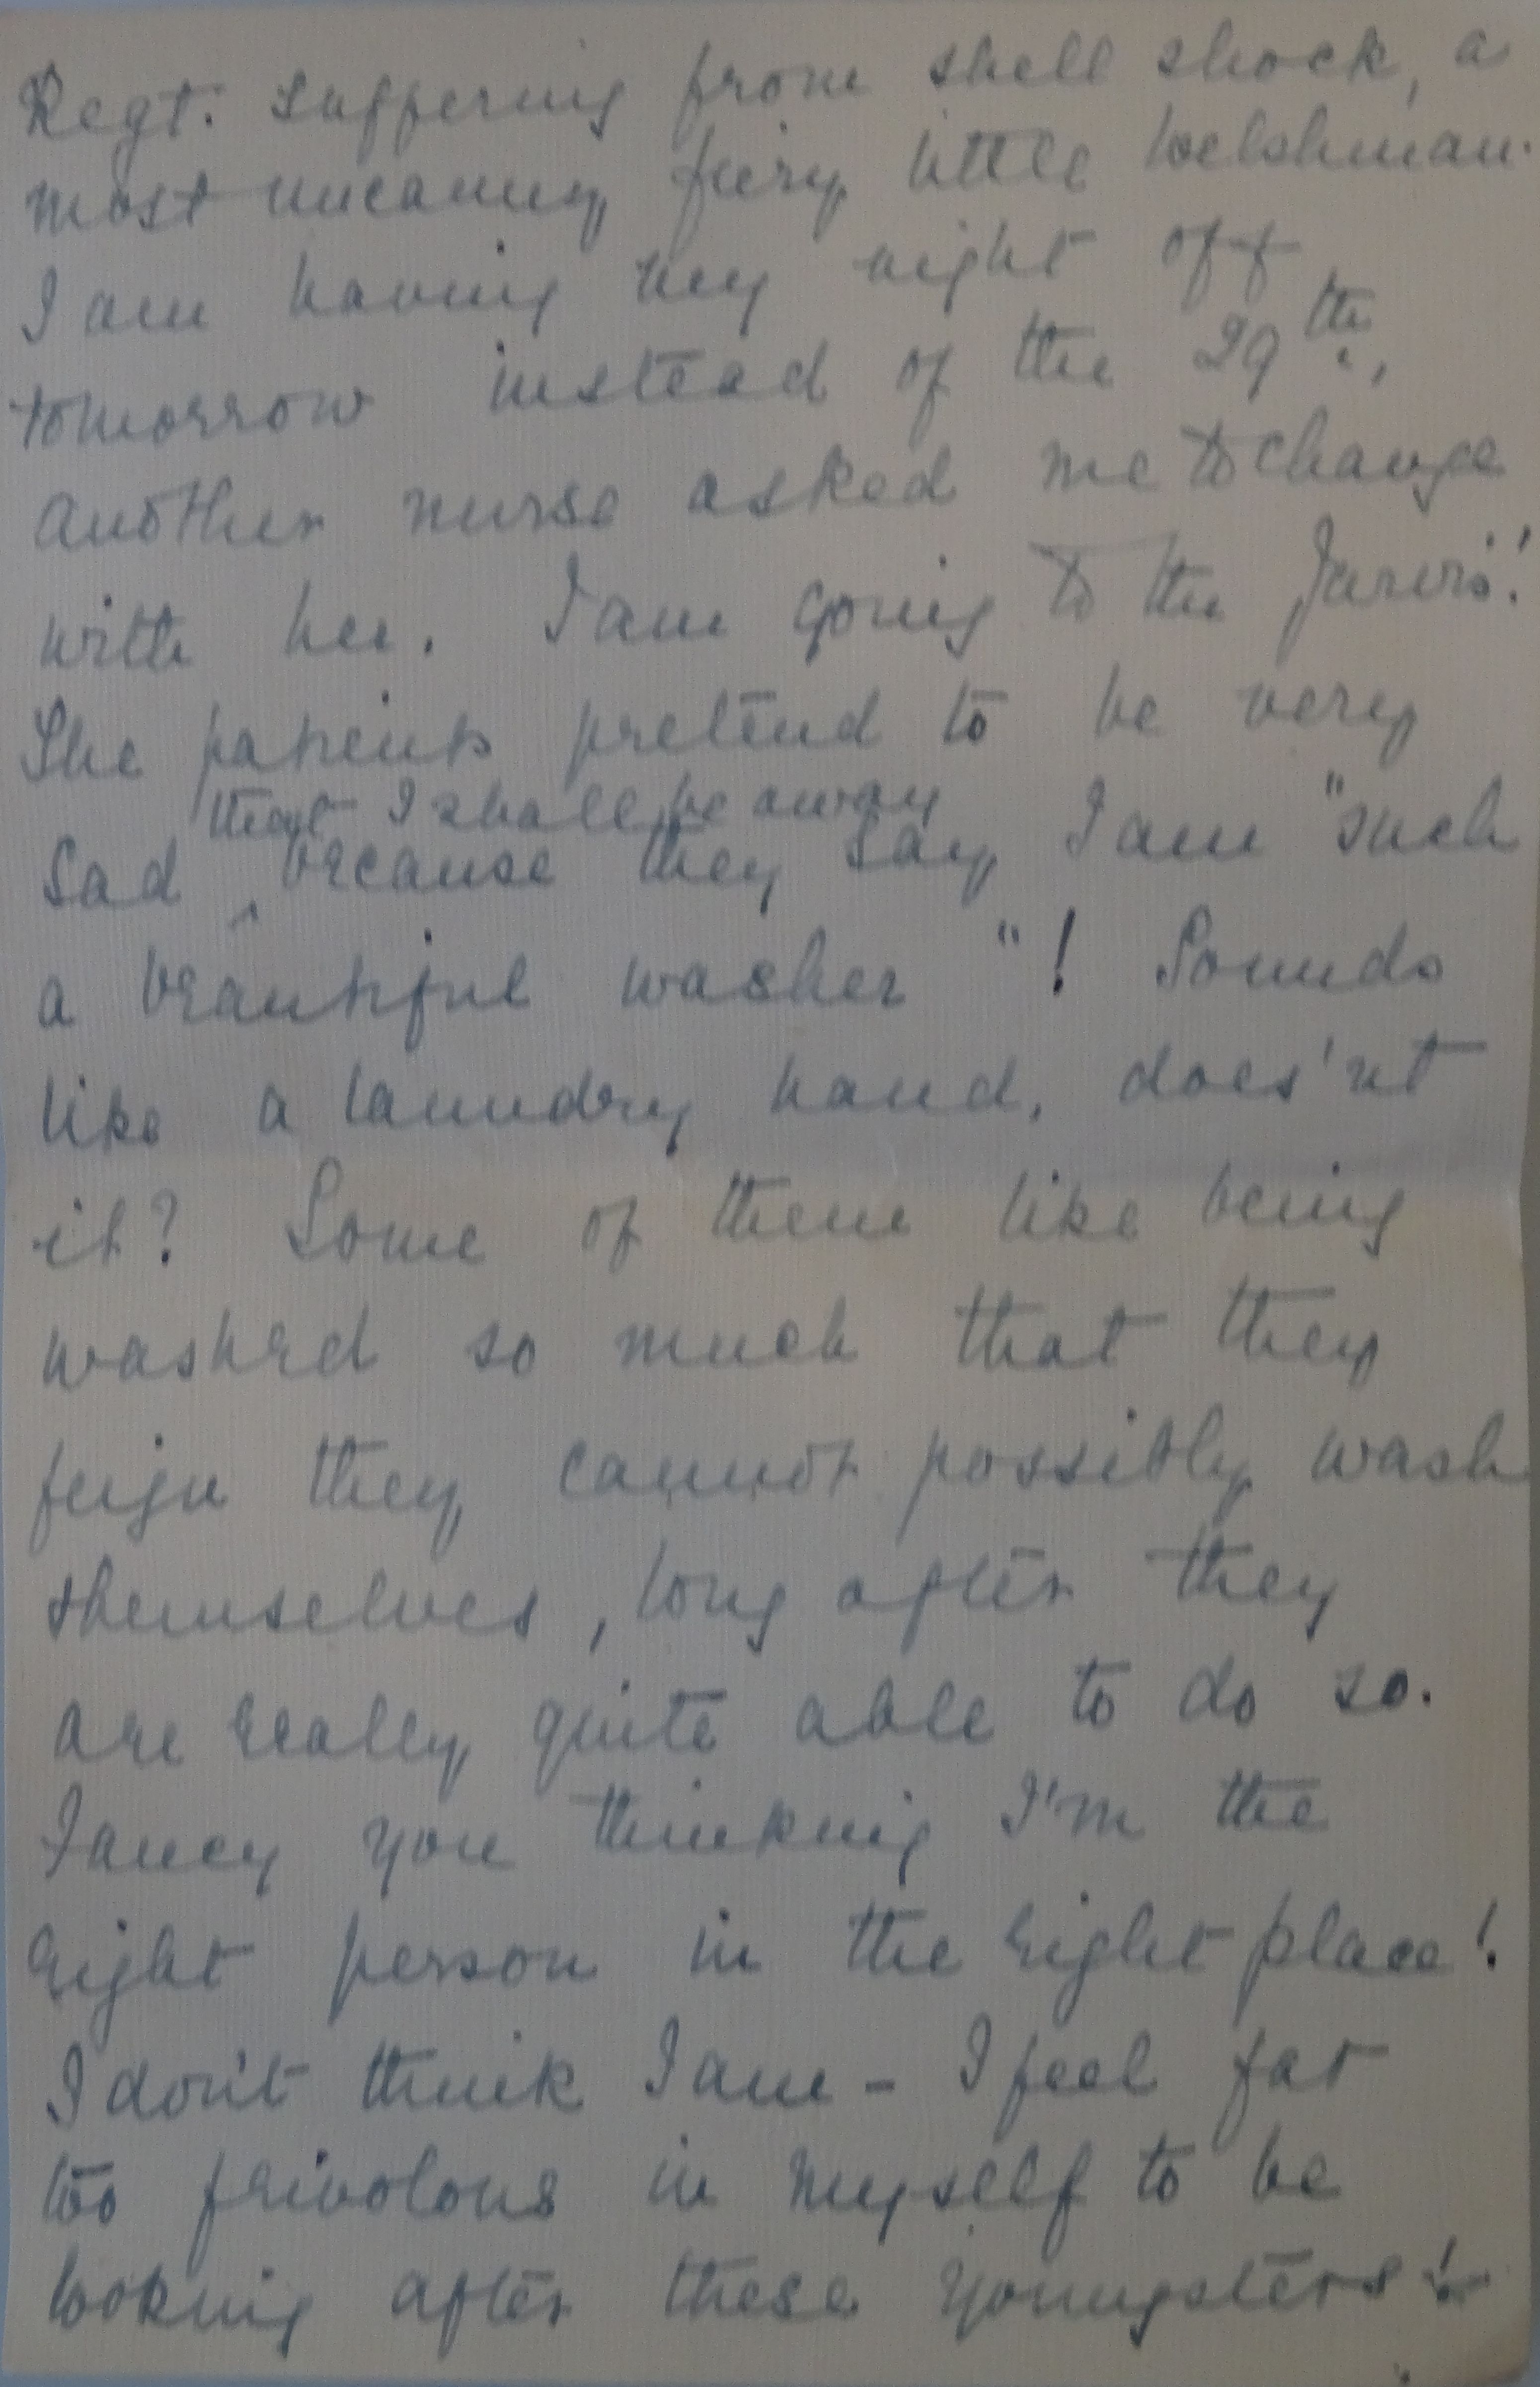 Regt. suffering from shell shock, a
most uncanny, fiery little Welshman.
I am having my night off
tomorrow instead of the 29th,
another nurse asked me to change
with her. I am going to the Jarvis'.
The patients pretend to be very
that I shall be away
sad ^ because they say I am "such
a beautiful washer"! Sounds
like a laundry hand, does'nt
it? Some of them like being
washed so much that they
feign they cannot possibly wash
themselves, long after they
are really quite able to do so.
Fancy you thinking I'm the
right person in the right place!
I don't think I am - I feel far
too frivolous in myself to be
looking after these youngsters!